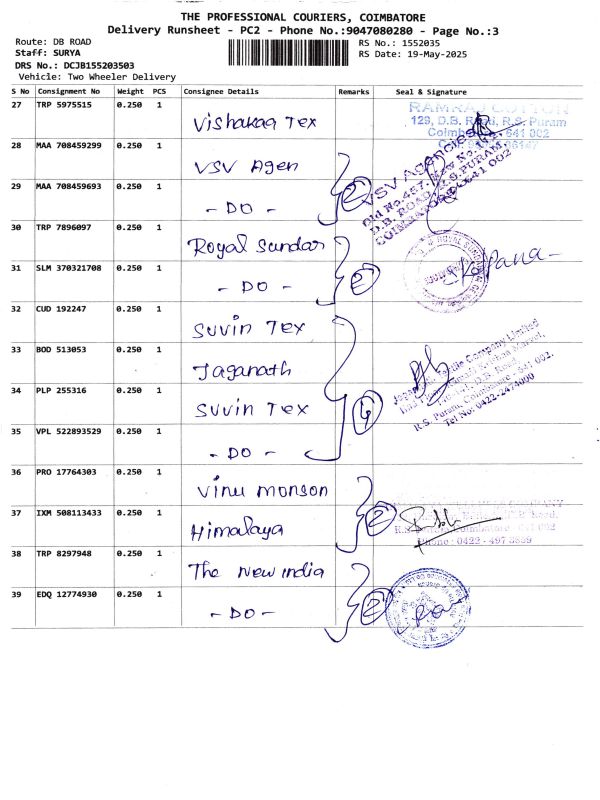 THE PROFESSIONAL COURIERS, COIMBATORE
Delivery Runsheet - PC2 - Phone No.:9047080280 - Page No.:3
Route: DB ROAD
Staff: SURYA
DRS No.: DCJB155203503
Vehicle: Two Wheeler Delivery
RS No.: 1552035
RS Date: 19-May-2025
S No Consignment No Weight PCS Consignee Details Remarks Seal & Signature
27 TRP 5975515 0.250 1 Vishakaa Tex
RAMRAJ COTTON
129, D.B. Road, R.S. Puram
Coimbatore - 641 002
28 MAA 708459299 0.250 1 VSV Agen
29 MAA 708459693 0.250 1 - DO - 2
VSV Agencies
Old No.457, New No.
D.B. ROAD, R.S. PURAM,
COIMBATORE-641 002
30 TRP 7896097 0.250 1 Royal Sundar
31 SLM 370321708 0.250 1 - DO - 2
Kalpana
32 CUD 192247 0.250 1 Suvin Tex
33 BOD 513053 0.250 1 Jaganath
34 PLP 255316 0.250 1 Suvin Tex 4
35 VPL 522893529 0.250 1 - DO -
Textile Company Limited
R.S. Puram, Coimbatore-641 002.
Tel No: 0422-2474000
36 PRO 17764303 0.250 1 Vinu monson
37 IXM 508113433 0.250 1 Himalaya 2
Coimbatore-641 002
Phone: 0422 - 497
38 TRP 8297948 0.250 1 The New india
39 EDQ 12774930 0.250 1 - DO - 2